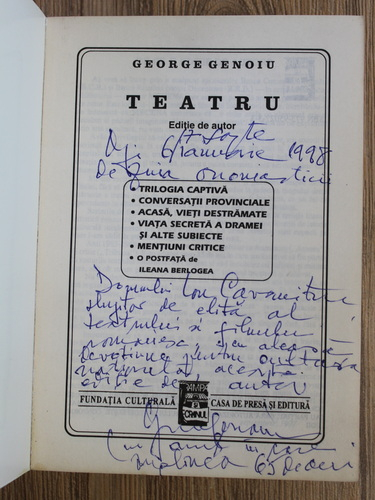 GEORGE GENOIU
TEATRU
Ediție de autor
Azi, 6 ianuarie 1998
De ziua onomasticii
• TRILOGIA CAPTIVĂ
• CONVERSAȚII PROVINCIALE
• ACASĂ, VIEȚI DESTRĂMATE
• VIAȚA SECRETĂ A DRAMEI
ȘI ALTE SUBIECTE
• MENȚIUNI CRITICE
• O POSTFAȚĂ de
ILEANA BERLOGEA
Domnului Ion
slujitor de elită al
teatrului și filmului
românesc,
devoțiune pentru cultura
națională, această
ediție de autor
FUNDAȚIA CULTURALĂ
CASA DE PRESĂ ȘI EDITURĂ
CRINUL